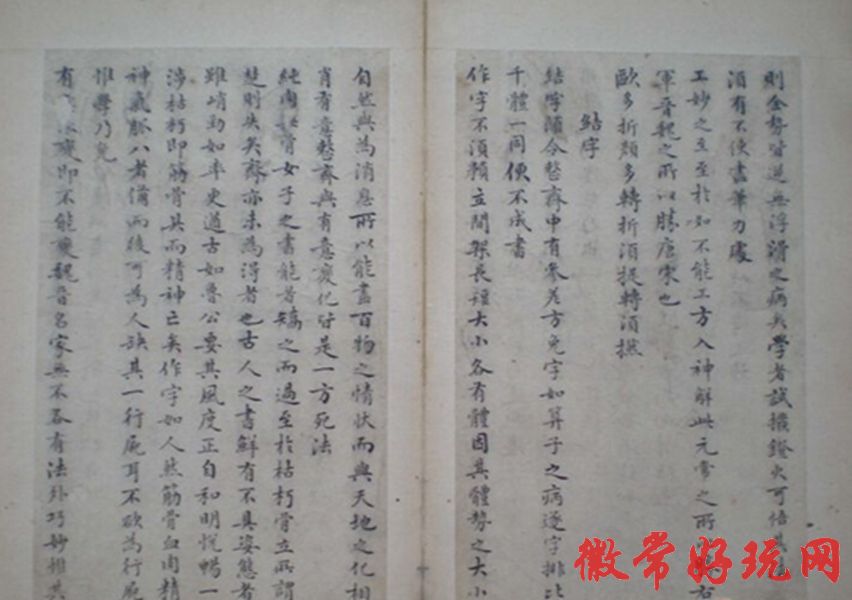 則全勢皆逆無浮滑之病矣學者試撥鐙火可悟其
湏有不使盡筆力處
工妙之至至於如不能工方入神解此元常之所右
軍晉魏之所以勝唐宋也
歐多折顏多轉折湏提轉湏撚
結字
結字湏令整齊中有參差方免字如算子之病逐字排比
千體一同便不成書
作字不湏預立間架長短大小各有體因其體勢之大小
自然與為消息所以能盡百物之情狀而與天地之化相
肖有意整齊與有意變化皆是一方死法
純肉骨女子之書能者矯之而過至於枯朽骨立所謂
楚則失矣齊亦未為得者也古人之書鮮有不具姿態者
雖峭勁如率更遒古如魯公要其風度正自和明悅暢一
涉枯朽即筋骨具而精神亡矣作字如人然筋骨血肉精
神氣脈八者備而後可為人缺其一行屍耳不欲為行屍
惟學乃免
有變即不能變魏晉名家無不各有法外巧妙惟其
徽常好玩网